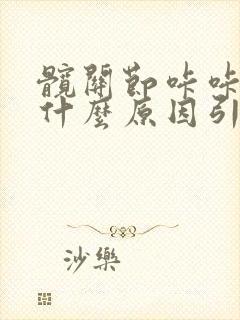 髖關節咔咔
什麼原因引
沙樂